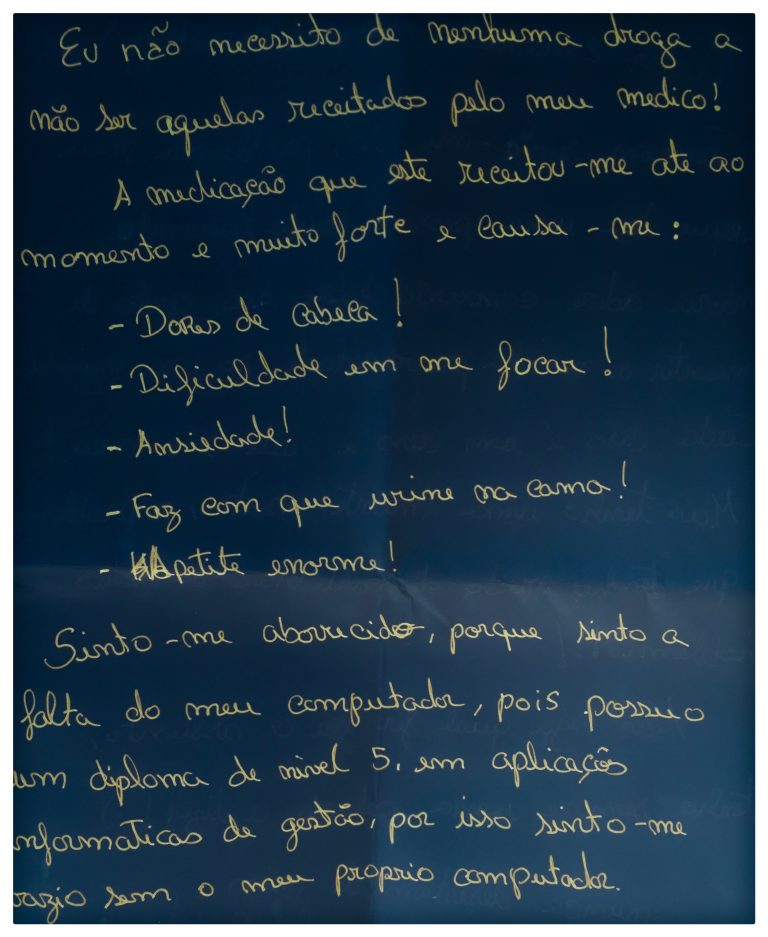 Eu não necessito de nenhuma droga a
não ser aquelas receitados pelo meu medico!
A medicação que este receitou-me ate ao
momento e muito forte e causa-me:
- Dores de cabeca!
- Dificuldade em me focar!
- Ansiedade!
- Faz com que urine na cama!
- Apetite enorme!
Sinto-me aborrecido, porque sinto a
falta do meu computador, pois possuo
um diploma de nivel 5, em aplicaçõs
informaticas de gestão, por isso sinto-me
vazio sem o meu proprio computador.